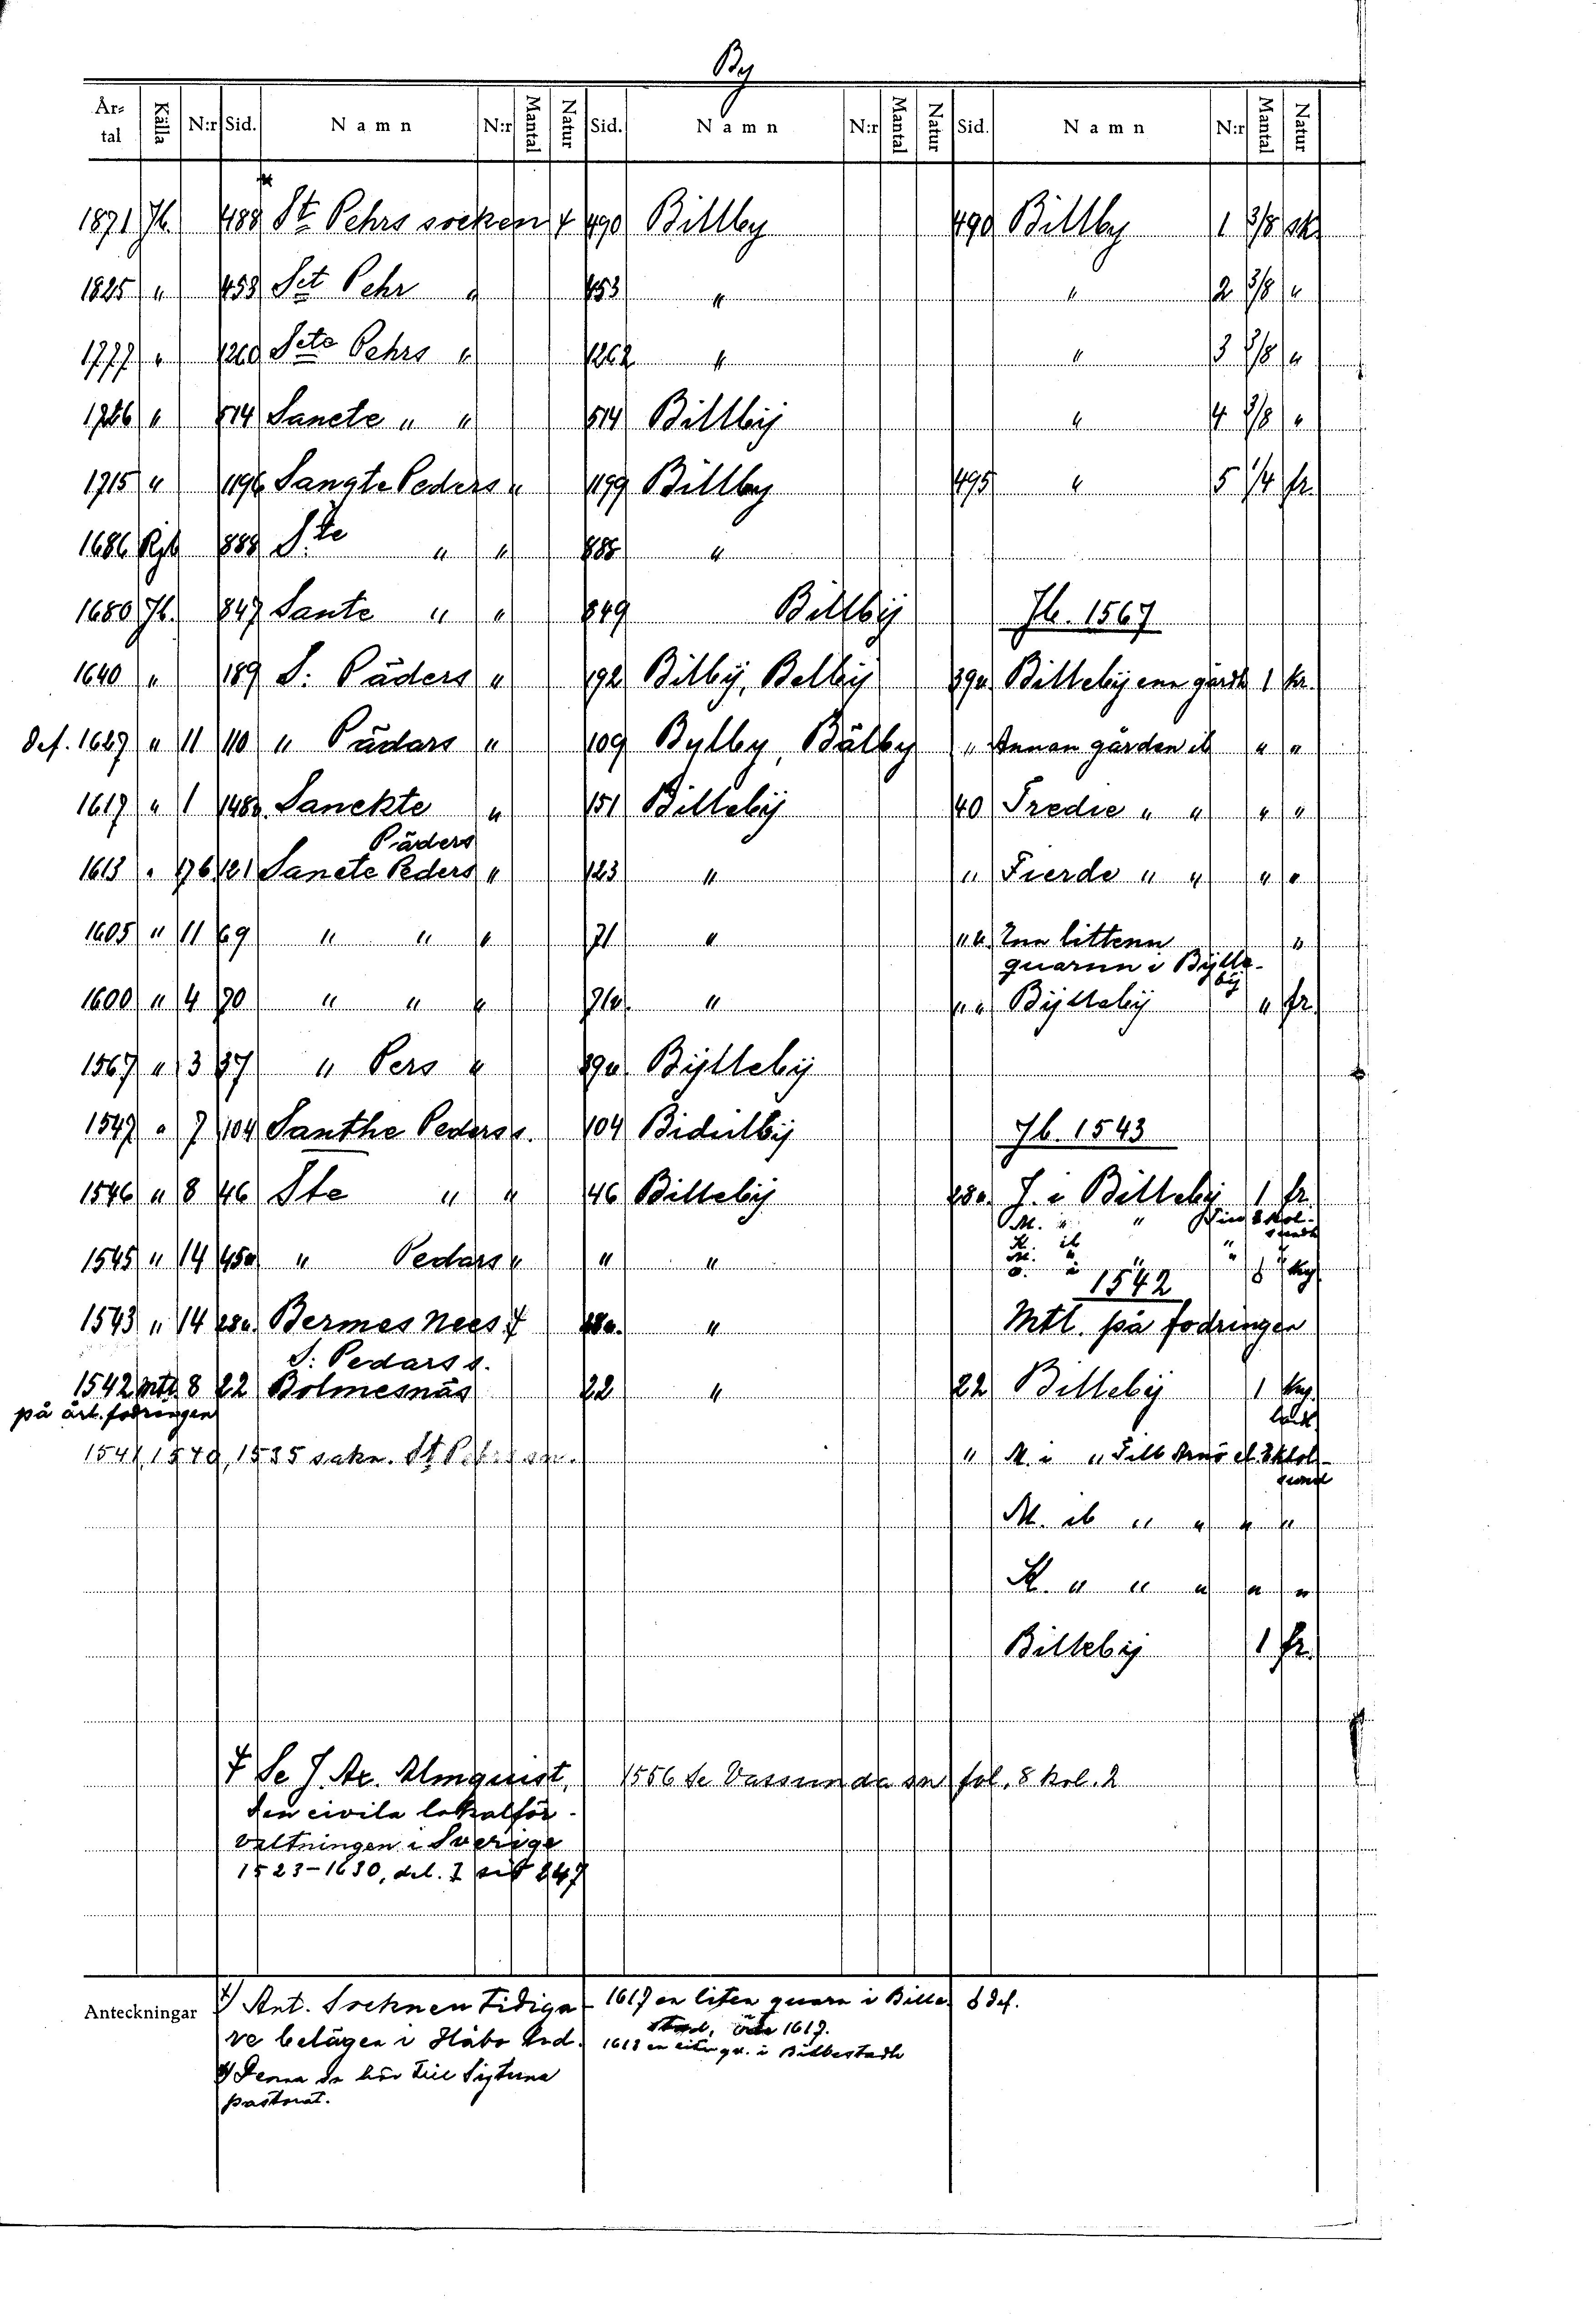 By
Årtal Källa N:r Sid. Namn N:r Mantal Natur Sid. Namn N:r Mantal Natur Sid. Namn N:r Mantal Natur
1871 Jb. 488 St Pehrs socken 490 Billby 490 Billby 1 3/8 sk
1825 " 453 Sct Pehr " 453 " " 2 3/8 "
1777 " 1260 Scts Pehrs " 1262 " " 3 3/8 "
" 514 Sancte " " 514 Billbij " 4 3/8 "
1715 " 1196 Sangte Peders " 1199 Billby 495 " 5 1/4 fr.
1686 888 Ste " " 888 "
1680 Jb. 847 Sante " " 849 Billbij Jb. 1567
1640 " 189 S: Päders " 192 Bilbij, Belbij 39a Billebij enn gårdh 1 kr.
def. 1627 " 11 110 " Pädars " 109 Bylby, Bälby " Annan gården ib " "
1617 " 1 148b Sanckte Päders " 151 Billebij 40 Tredie " " " "
1613 " 176 121 Sancte Peders " 123 " " Fierde " " " "
1605 " 11 69 " " " 71 " " b. Enn littenn quarnn i Byllebij "
1600 " 4 70 " " " 71a. " " " Bijllebij " fr.
1567 " 3 37 " Pers " 39a Bijllebij
1547 " 7 104 Santhe Peders s. 104 Bidulbij Jb. 1543
1546 " 8 46 Ste " " 46 Billebij 28a. J. i Billebij 1 fr.
M. " "
1545 " 14 45a " Pedars " " "
1542
1543 " 14 28a. Bermes nees 28a. " Mtl. på fodringen
S: Pedars s.
1542 Mtl 8 22 Bolmesnäs 22 " 22 Billebij 1
på årl. fodringen
1541, 1540, 1535 sakn. St Peders sn. " M. i " Till Arnö
M. ib " " " "
K. " " " " "
Billebij 1 fr.
Se J. Ax. Almquist, 1556 se Vassunda sn fol. 8 kol. 2
Den civila lokalför-
valtningen i Sverige
1523-1630, del. I sid 247
Anteckningar Ant. Socknen tidiga- 1617 en liten quarn i Bille- 8 def.
stad, öde 1617.
re belägen i Håbo hd. 1613 en liten qv. i Billestadh
Denna sn hör till Sigtuna
pastorat.